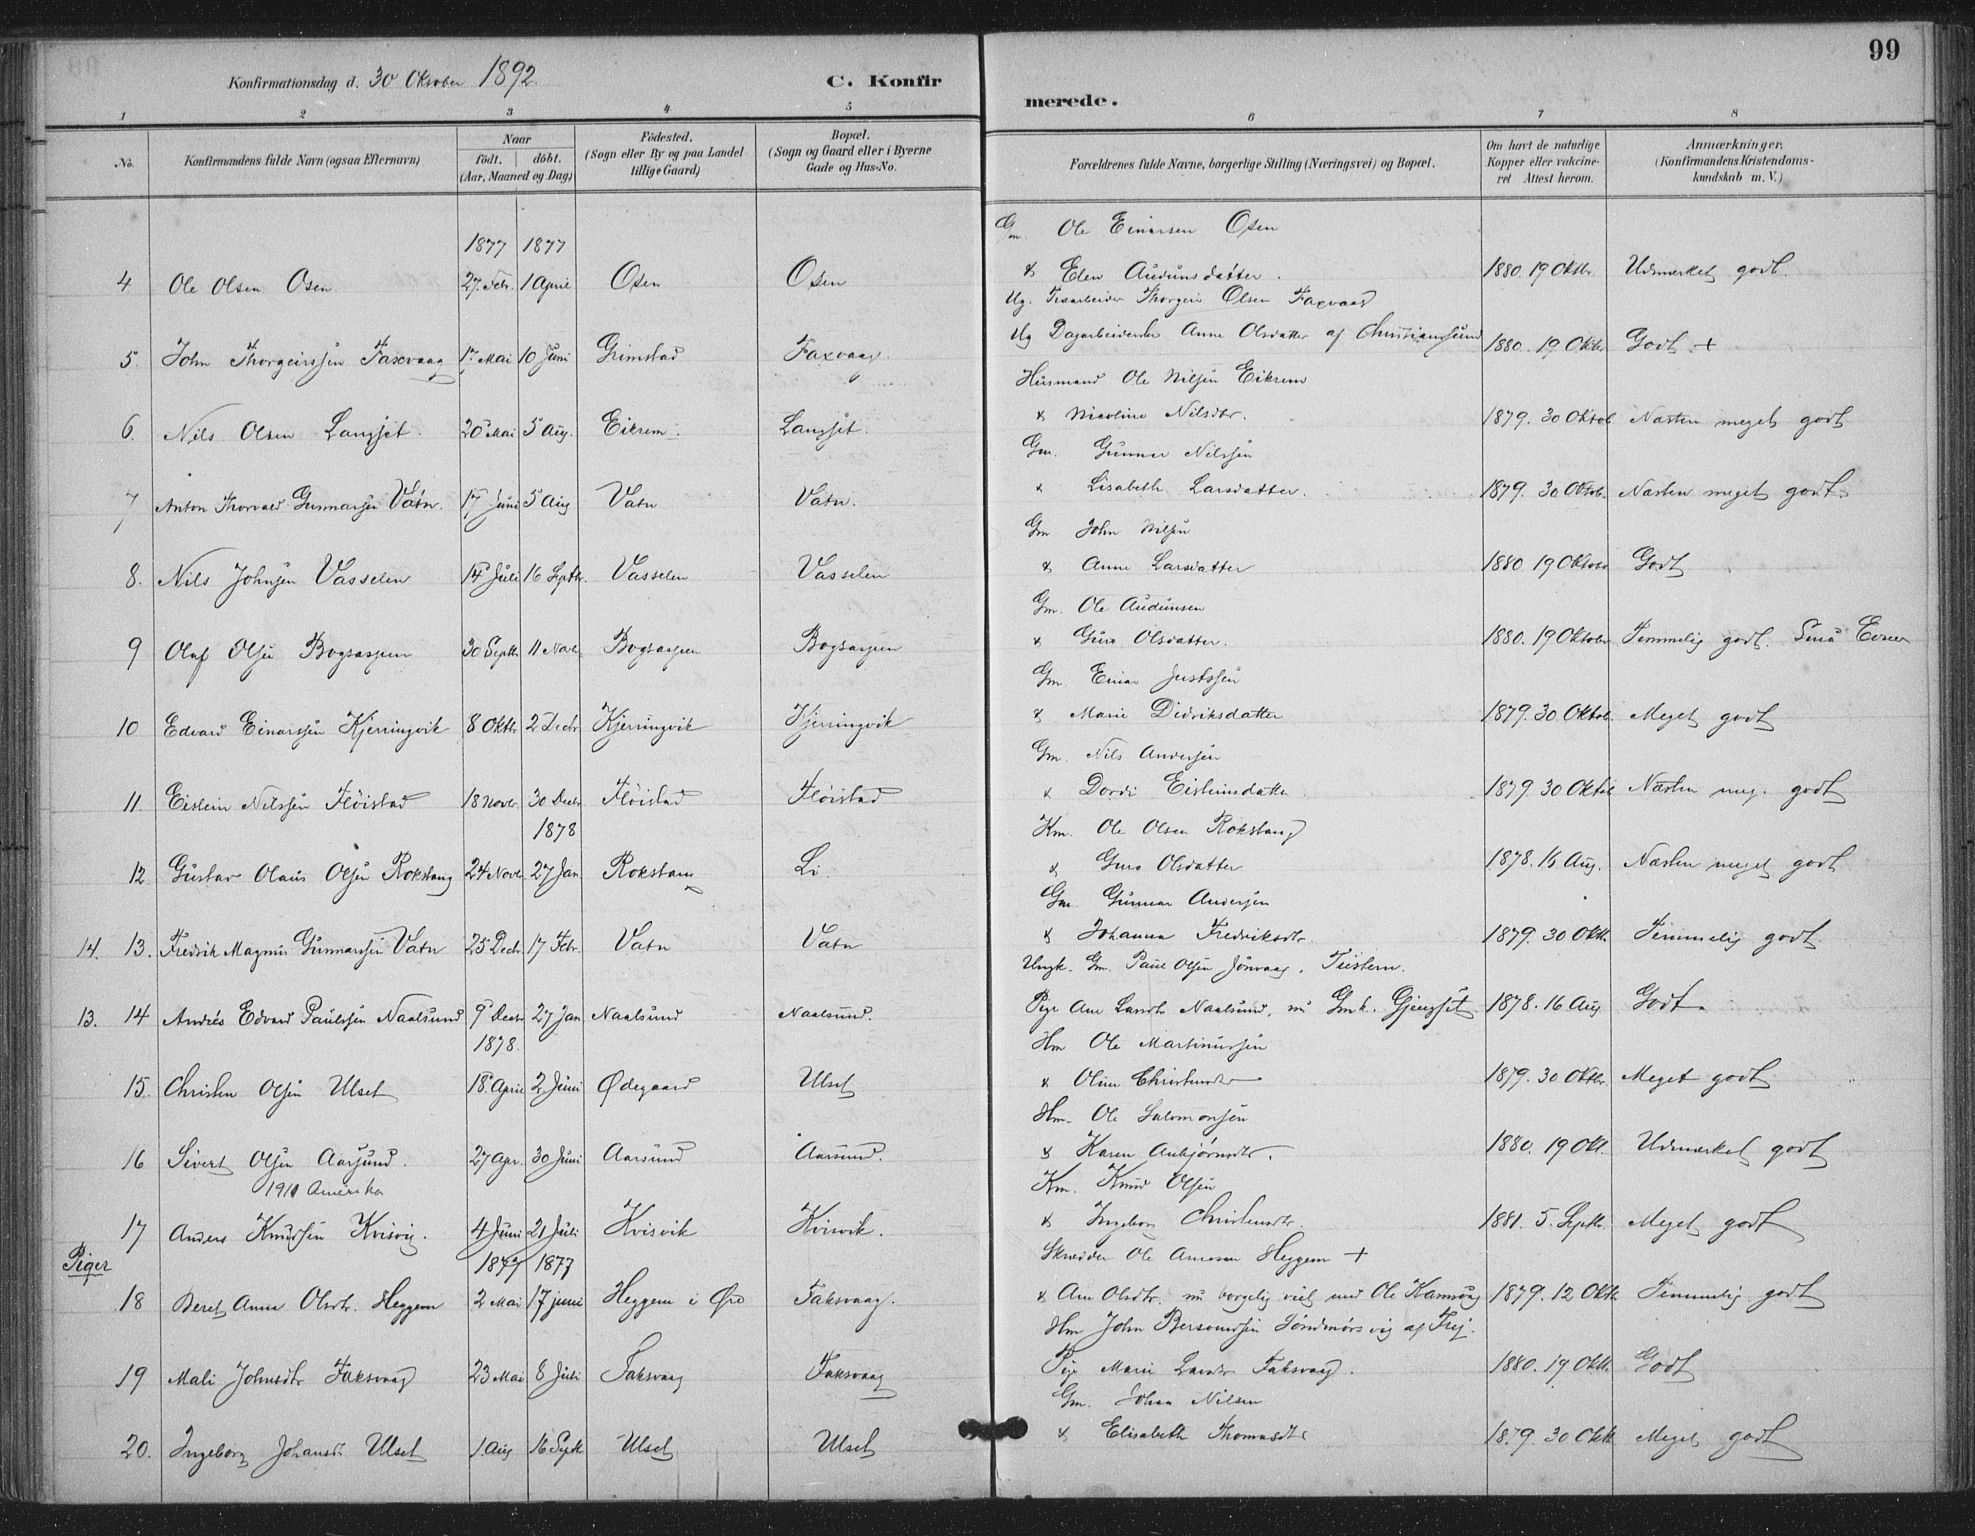 99
Konfirmationsdag d. 30 Oktober 1892. C. Konfirmerede.
1 2 3 4 5 6 7 8
No. Konfirmandens fulde Navn (ogsaa Efternavn) Naar födt. döbt. (Aar, Maaned og Dag) Födested. (Sogn eller By og paa Landet tillige Gaard) Bopæl. (Sogn og Gaard eller i Byerne Gade og Hus-No. Forældrenes fulde Navne, borgerlige Stilling (Næringsvei) og Bopæl. Om havt de naturlige Kopper eller vakcineret Attest herom. Anmærkninger, (Konfirmandens Kristendomskundskab m. V.)
1877 1877 Gm. Ole Einarsen Osen
4 Ole Olsen Osen 27. Febr. 1 April Osen Osen & Elen Audunsdatter. 1880. 19 Oktbr. Udmærket godt.
Ug. Thorgeir Olsen Faxvaag
5. John Thorgeirssen Faxvaag 17. Mai 10 Juni Grimstad Faxvaag Ug Dagarbeiderske Anne Olsdatter af Christianssund 1880. 19 Oktbr Godt +
Husmand Ole Nilsen Eikrem
6. Nils Olsen Langset. 20 Mai 5 Aug. Eikrem. Langset. & Nicoline Nilsdtr. 1879. 30 Oktob Næsten meget godt
Gm. Gunnar Nilssen
7 Anton Thorvald Gunnarsen Vatn. 17 Juni 5 Aug Vatn Vatn. & Lisabeth Larsdatter. 1879. 30 Oktob. Næsten meget godt.
Gm John Nilsen
8. Nils Johnsen Vasselen 14 Juli 16 Septbr. Vasselen Vasselen & Anne Larsdatter 1880. 19 Oktober Godt
Gm. Ole Audunsen
9 Olaf Olsen Bogsaspen 30 Septbr 11 Novbr Bogsaspen Bogsaspen & Guro Olsdatter. 1880. 19 Oktober Temmelig godt. Smaa Evner
Gm. Einar Justssen
10 Edvard Einarssen Kjerringvik 8 Oktbr 2 Decbr Kjerringvik Kjerringvik & Marie Didriksdatter 1879. 30 Oktob. Meget godt
Gm. Nils Andersen
11. Eistein Nilssen Fløistad 18 Novbr. 30 Decbr. Fløistad Fløistad & Dordi Eisteinsdatter 1879. 30 Oktob Næsten meg. godt
1878 Km. Ole Olsen Rokstang
12 Gustav Olaus Olsen Rokstang 24 Novbr. 27 Jan Rokstang Li. & Guro Olsdatter 1878. 16 Aug. Næsten meget godt
Gm. Gunnar Andersen
14. 13. Fredrik Magnus Gunnarsen Vatn 25 Decbr. 17 Febr. Vatn Vatn & Johanna Fredriksdtr 1879. 30 Oktbr. Temmelig godt.
Ungk. Gm. Paul Olsen Jønvaag, Tustern.
13. 14 Andreas Edvard Paulssen Naalsund 9 Decbr 27 Jan. Naalsund Naalsund. Pige Ane Larsdtr Naalsund, nu Gmk. Gjengset 1878. 16 Aug Godt
1878. Hm Ole Martinussen
15. Christen Olsen Ulset 18. April 2 Juni Ødegaard Ulset & Oline Christensdtr 1879. 30 Oktbr. Meget godt
Hm. Ole Salomonsen
16 Sivert Olsen Aarsund. 27 Apr. 30 Juni Aarsund Aarsund. & Karen Anbjørnsdtr. 1880. 19 Okt. Udmærket godt
1910 Amerika Km. Knud Olsen
17 Anders Knudsen Kvisvig. 4 Juni 21 Juli Kvisvik Kvisvik. & Ingeborg Christensdtr. 1881. 5. Septbr. Meget godt
Piger 1877 1877 Skrædder Ole Arnesen Heggem +
18 Beret Anna Olsdtr. Heggem 2 Mai 17 juni Heggem i Øre Faksvaag. & Ane Olsdtr. nu borgelig viet med Ole Kamsvaag 1879. 12 Oktb Temmelig godt
Hm John Bersvendsen Søndmørsvig af Frej.
19 Mali Johnsdtr Faksvaag 23 Mai 8 Juli Faksvaag Faksvaag Pige Marie Larsdtr Faksvaag. 1880. 19 Oktb. Godt
Gm. Johan Nilsen
20. Ingeborg Johansdtr Ulset 1. Aug 16 Septb Ulset Ulset & Elisabeth Thomasdtr 1879. 30 Oktb Meget godt